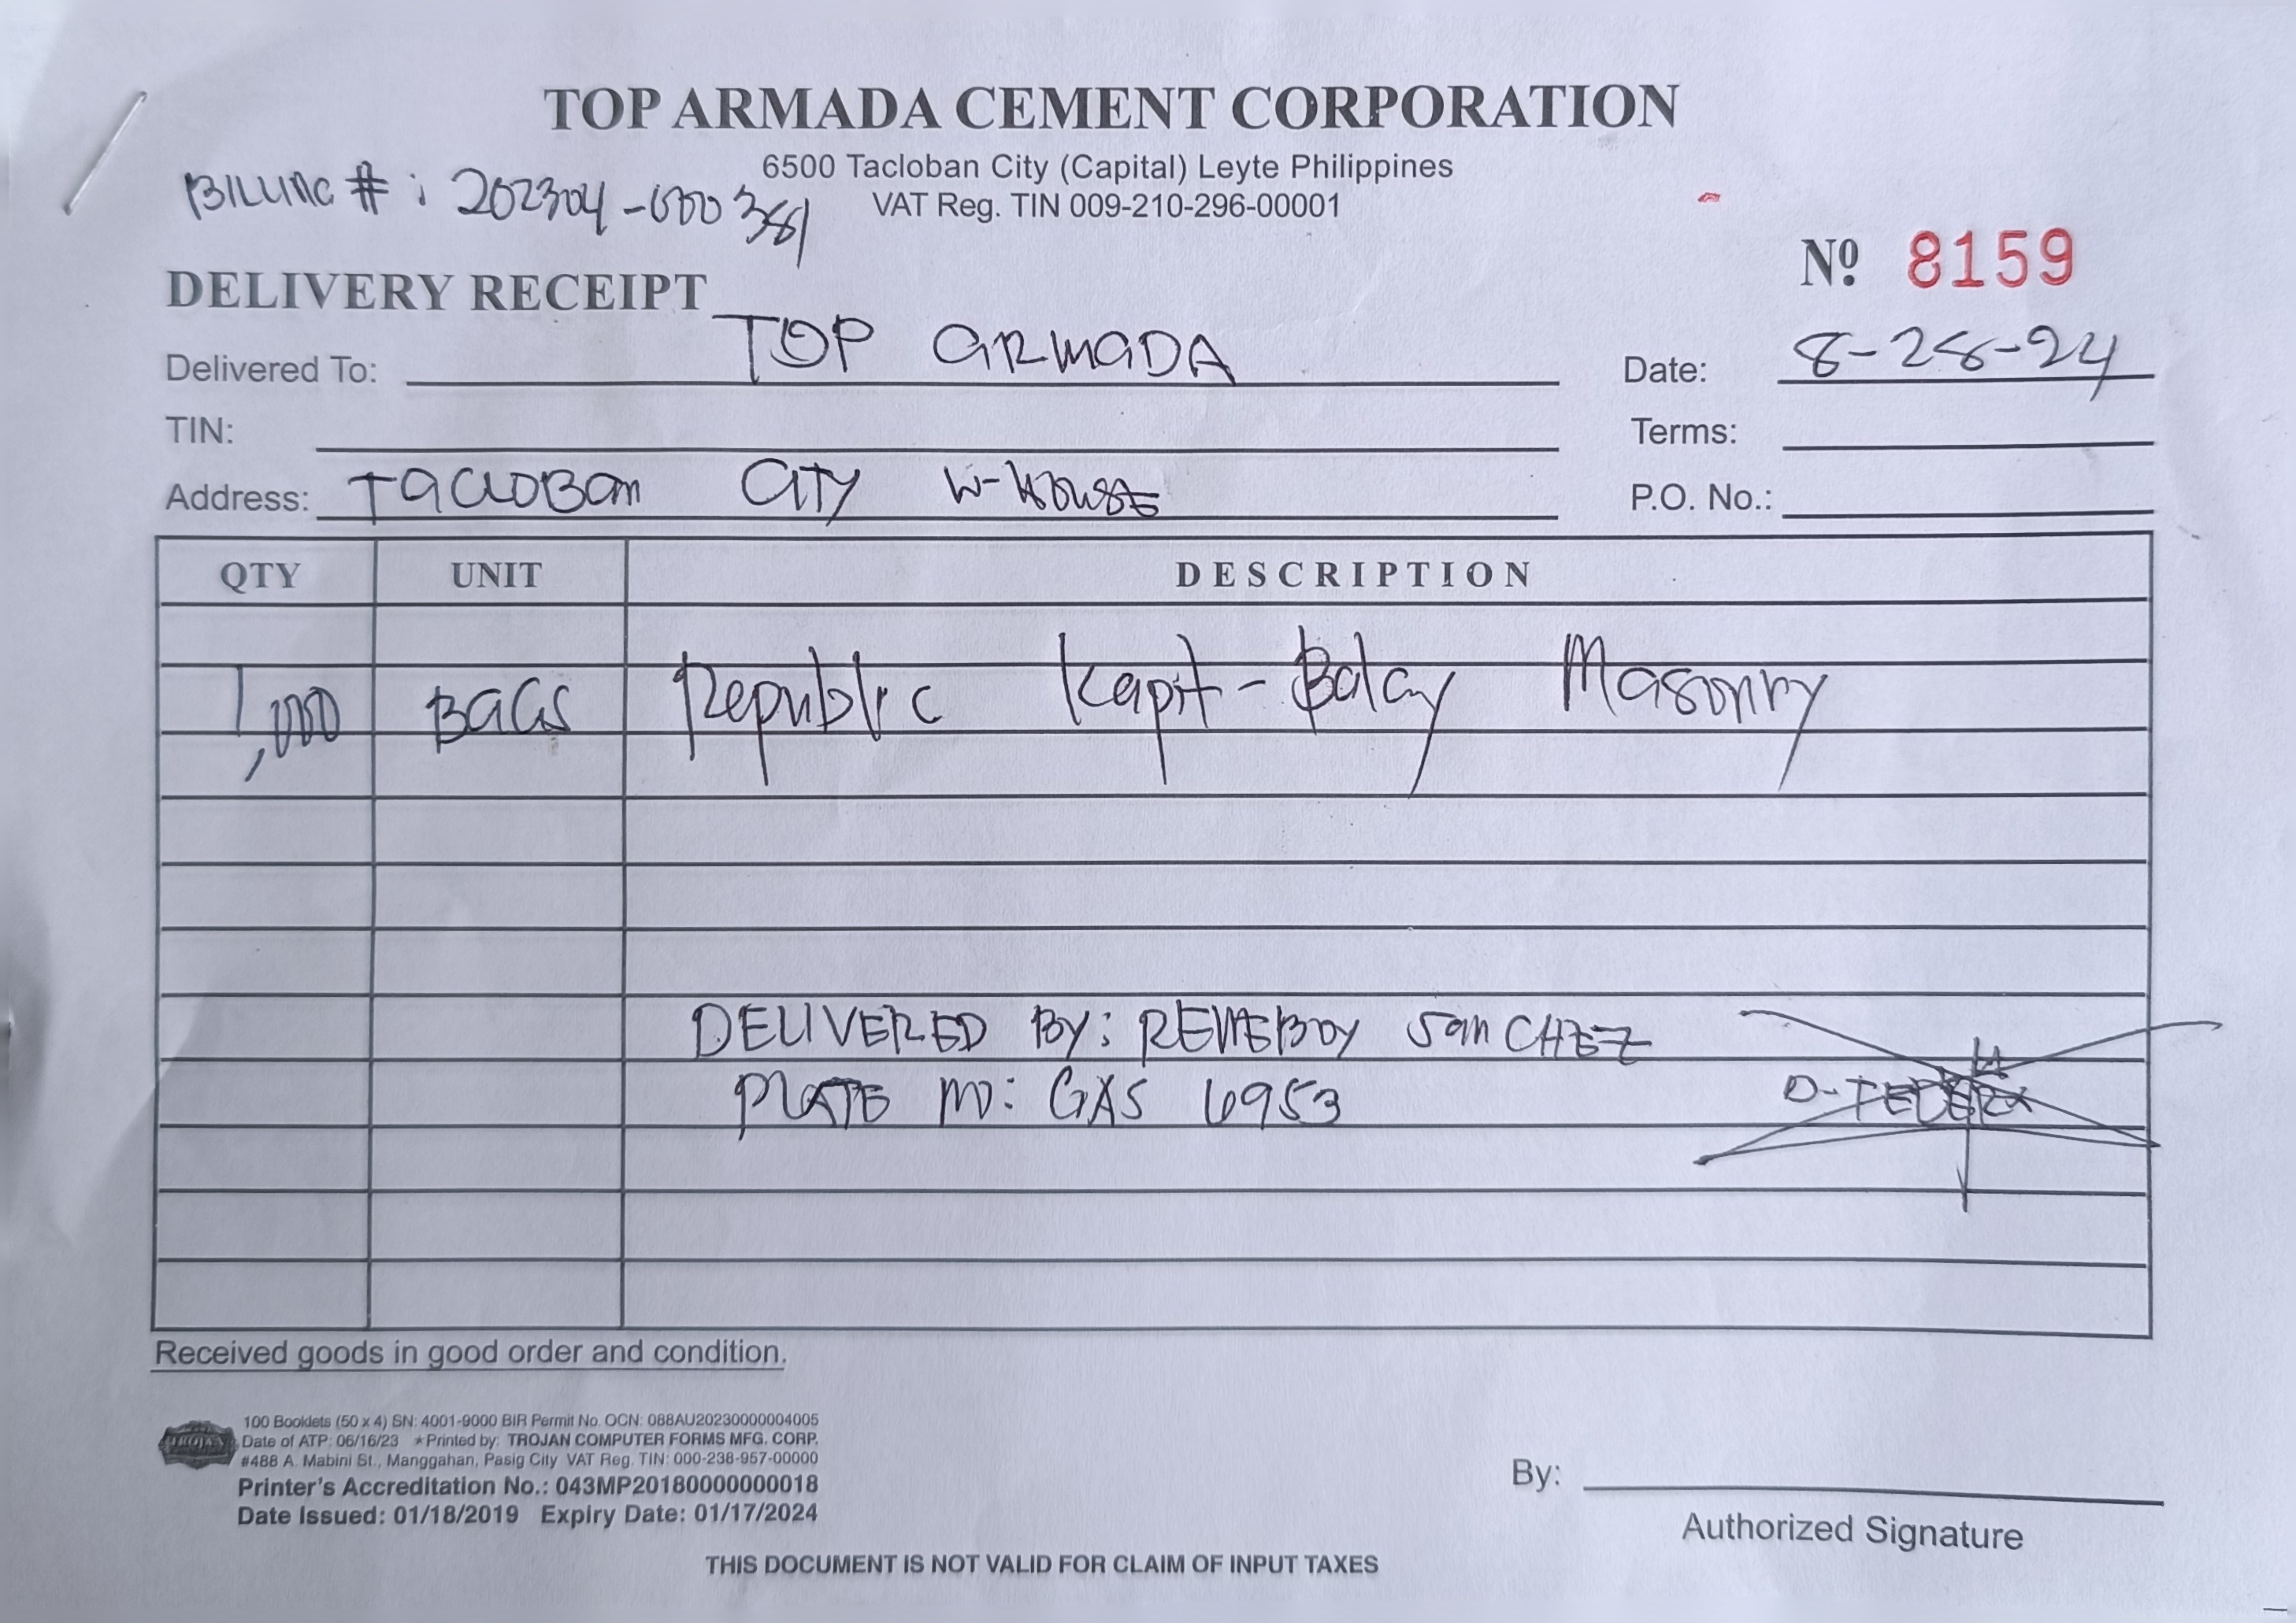 TOP ARMADA CEMENT CORPORATION
6500 Tacloban City (Capital) Leyte Philippines
VAT Reg. TIN 009-210-296-00001
BILLING # : 202304-000381
Nº 8159
DELIVERY RECEIPT
Delivered To: TOP ARMADA Date: 8-28-24
TIN: Terms:
Address: TACLOBAN CITY W-HOUSE P.O. No.:
QTY UNIT DESCRIPTION
1,000 BAGS Republic Kapit-Balay Masonry
DELIVERED BY: RENEBOY SANCHEZ
PLATE NO: GAS 6953
Received goods in good order and condition.
TROJAN
100 Booklets (50 x 4) SN: 4001-9000 BIR Permit No. OCN: 088AU20230000004005
Date of ATP: 06/16/23 ★Printed by: TROJAN COMPUTER FORMS MFG. CORP.
#488 A. Mabini St., Manggahan, Pasig City VAT Reg. TIN: 000-238-957-00000
Printer's Accreditation No.: 043MP20180000000018
Date Issued: 01/18/2019 Expiry Date: 01/17/2024
By:
Authorized Signature
THIS DOCUMENT IS NOT VALID FOR CLAIM OF INPUT TAXES